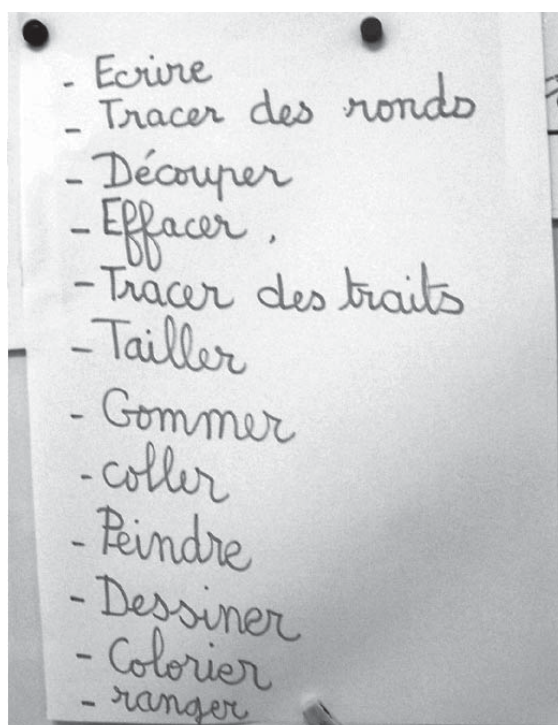 - Ecrire
- Tracer des ronds
- Découper
- Effacer .
- Tracer des traits
- Tailler
- Gommer
- coller
- Peindre
- Dessiner
- Colorier
- ranger